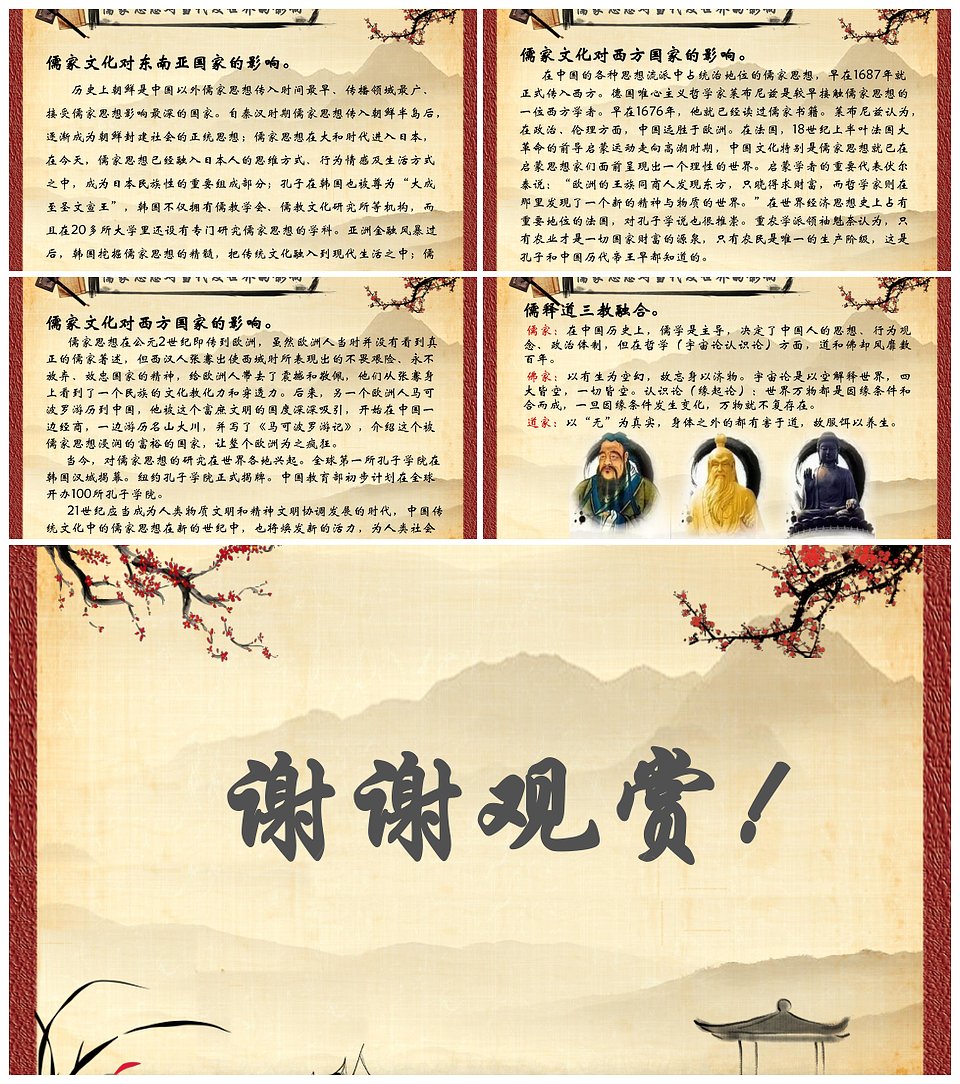 儒家思想对当代及世界的影响
儒家文化对东南亚国家的影响。
历史上朝鲜是中国以外儒家思想传入时间最早、传播领域最广、
接受儒家思想影响最深的国家。自秦汉时期儒家思想传入朝鲜半岛后，
逐渐成为朝鲜封建社会的正统思想；儒家思想在大和时代进入日本，
在今天，儒家思想已经融入日本人的思维方式、行为情感及生活方式
之中，成为日本民族性的重要组成部分；孔子在韩国也被尊为“大成
至圣文宣王”，韩国不仅拥有儒教学会、儒教文化研究所等机构，而
且在20多所大学里还设有专门研究儒家思想的学科。亚洲金融风暴过
后，韩国挖掘儒家思想的精髓，把传统文化融入到现代生活之中；儒
儒家思想对当代及世界的影响
儒家文化对西方国家的影响。
在中国的各种思想流派中占统治地位的儒家思想，早在1687年就
正式传入西方。德国唯心主义哲学家莱布尼兹是较早接触儒家思想的
一位西方学者。早在1676年，他就已经读过儒家书籍。莱布尼兹认为，
在政治、伦理方面，中国远胜于欧洲。在法国，18世纪上半叶法国大
革命的前导启蒙运动走向高潮时期，中国文化特别是儒家思想就已在
启蒙思想家们面前呈现出一个理性的世界。启蒙学者的重要代表伏尔
泰说：“欧洲的王族同商人发现东方，只晓得求财富，而哲学家则在
那里发现了一个新的精神与物质的世界。”在世界经济思想史上占有
重要地位的法国，对孔子学说也很推崇。重农学派领袖魁奈认为，只
有农业才是一切国家财富的源泉，只有农民是唯一的生产阶级，这是
孔子和中国历代帝王早都知道的。
儒家思想对当代及世界的影响
儒家文化对西方国家的影响。
儒家思想在公元2世纪即传到欧洲，虽然欧洲人当时并没有看到真
正的儒家著述，但西汉人张骞出使西域时所表现出的不畏艰险、永不
放弃、效忠国家的精神，给欧洲人带去了震撼和敬佩，他们从张骞身
上看到了一个民族的文化教化力和穿透力。后来，另一个欧洲人马可
波罗游历到中国，他被这个富庶文明的国度深深吸引，开始在中国一
边经商，一边游历名山大川，并写了《马可波罗游记》，介绍这个被
儒家思想浸润的富裕的国家，让整个欧洲为之疯狂。
当今，对儒家思想的研究在世界各地兴起。全球第一所孔子学院在
韩国汉城揭幕。纽约孔子学院正式揭牌。中国教育部初步计划在全球
开办100所孔子学院。
21世纪应当成为人类物质文明和精神文明协调发展的时代，中国传
统文化中的儒家思想在新的世纪中，也将焕发新的活力，为人类社会
儒释道三教融合。
儒家：在中国历史上，儒学是主导，决定了中国人的思想、行为观
念、政治体制，但在哲学（宇宙论认识论）方面，道和佛却风靡数
百年。
佛家：以有生为空幻，故忘身以济物。宇宙论是以空解释世界，四
大皆空，一切皆空。认识论（缘起论）：世界万物都是因缘条件和
合而成，一旦因缘条件发生变化，万物就不复存在。
道家：以“无”为真实，身体之外的都有害于道，故服饵以养生。
谢谢观赏！